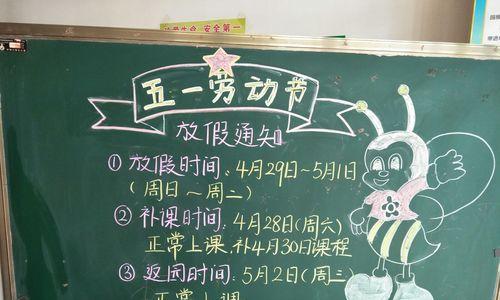 安全第一
五一劳动节
放假通知
①放假时间:4月29日~5月1日
(周日~周二)
②补课时间:4月28日(周六)
正常上课,补4月30日课程
③返园时间:5月2日(周三
正常上课